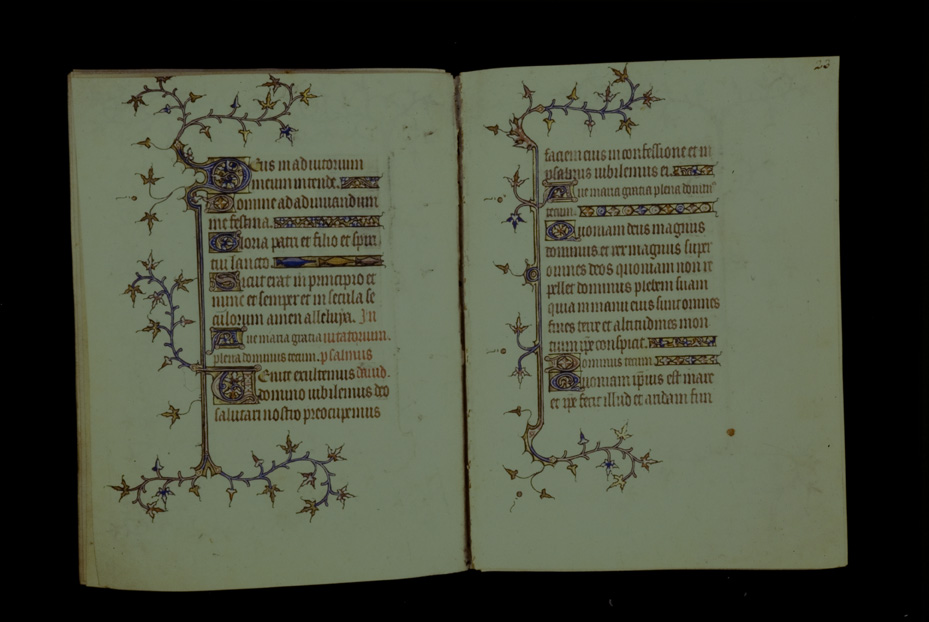 Deus in adiutorium
meum intende.
Domine ad adiuuandum
me festina.
Gloria patri et filio et spiri
tui sancto.
Sicut erat in principio et
nunc et semper et in secula se
culorum amen alleluya. In
Aue maria gracia uitatorium.
plena dominus tecum. psalmus
Venite exultemus dauid.
domino iubilemus deo
salutari nostro preocupemus
23
faciem eius in confessione et in
psalmis iubilemus ei.
Aue maria gratia plena domin
tecum.
Quoniam deus magnus
dominus et rex magnus super
omnes deos quoniam non re
pellet dominus plebem suam
quia in manu eius sunt omnes
fines terre et altitudines mon
cium ipse conspicit.
Dominus tecum.
Quoniam ipsius est mare
et ipse fecit illud et aridam fun